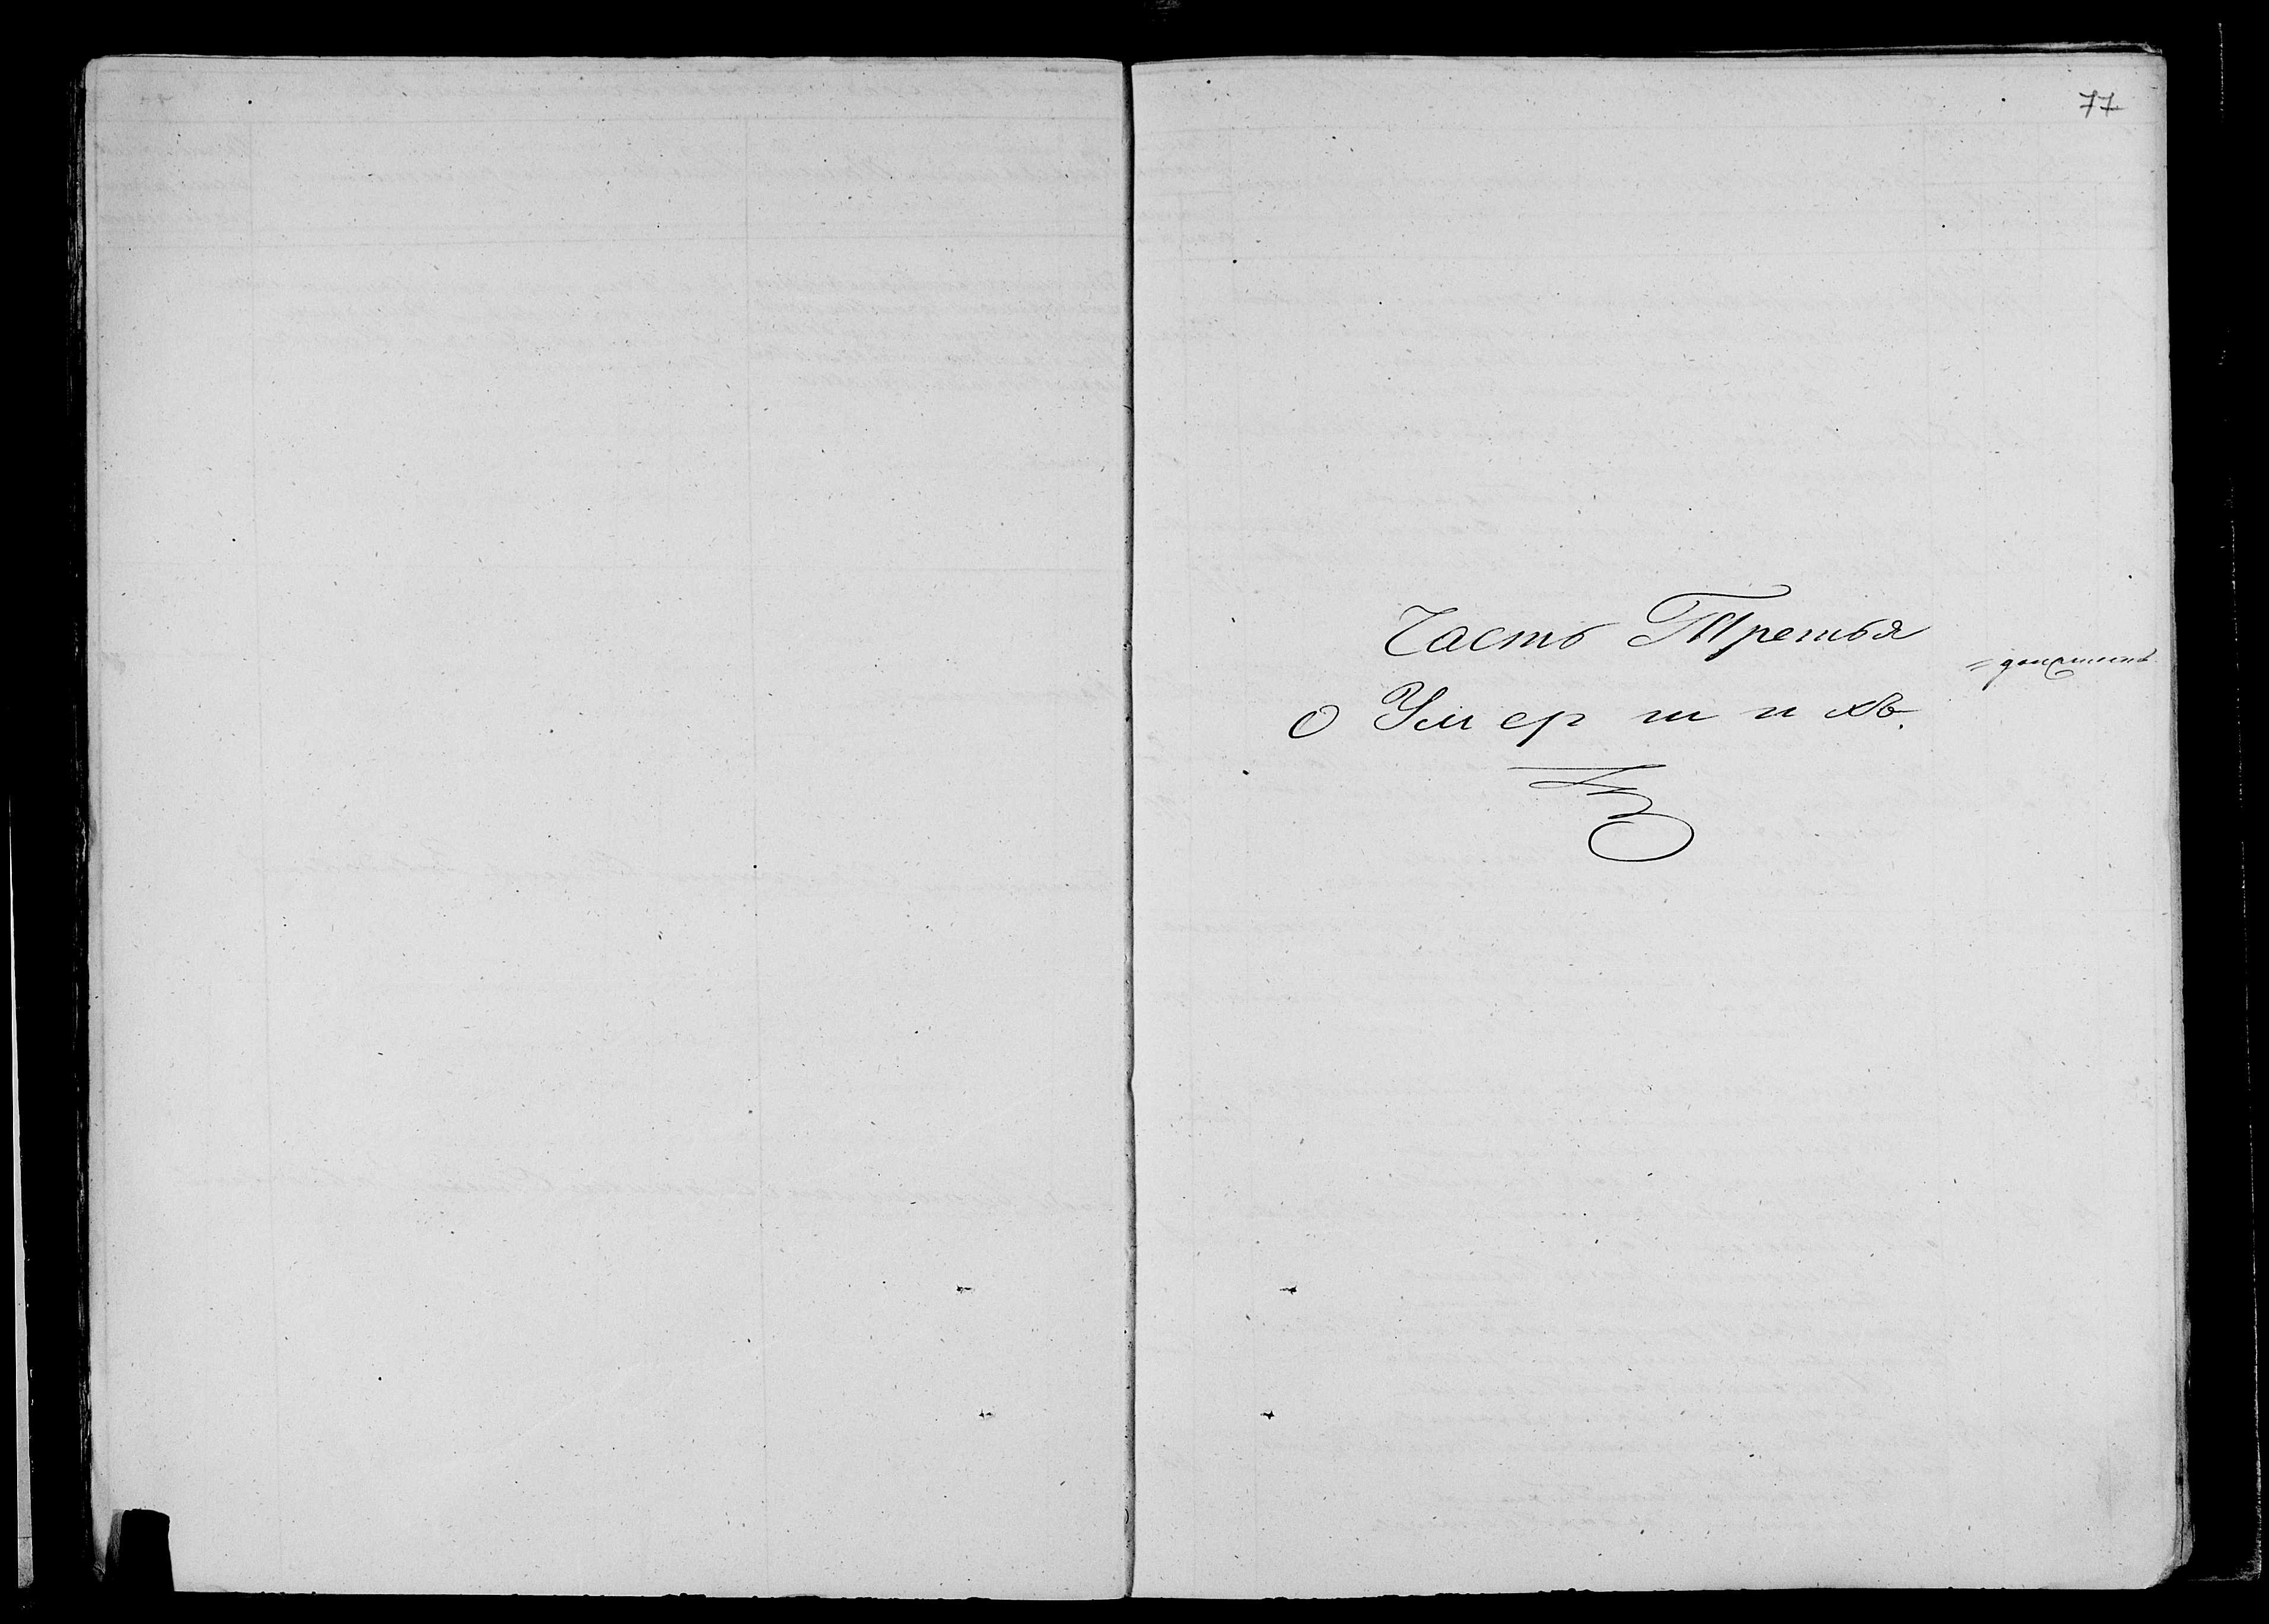 77
Часть Третья
о Умершихъ.